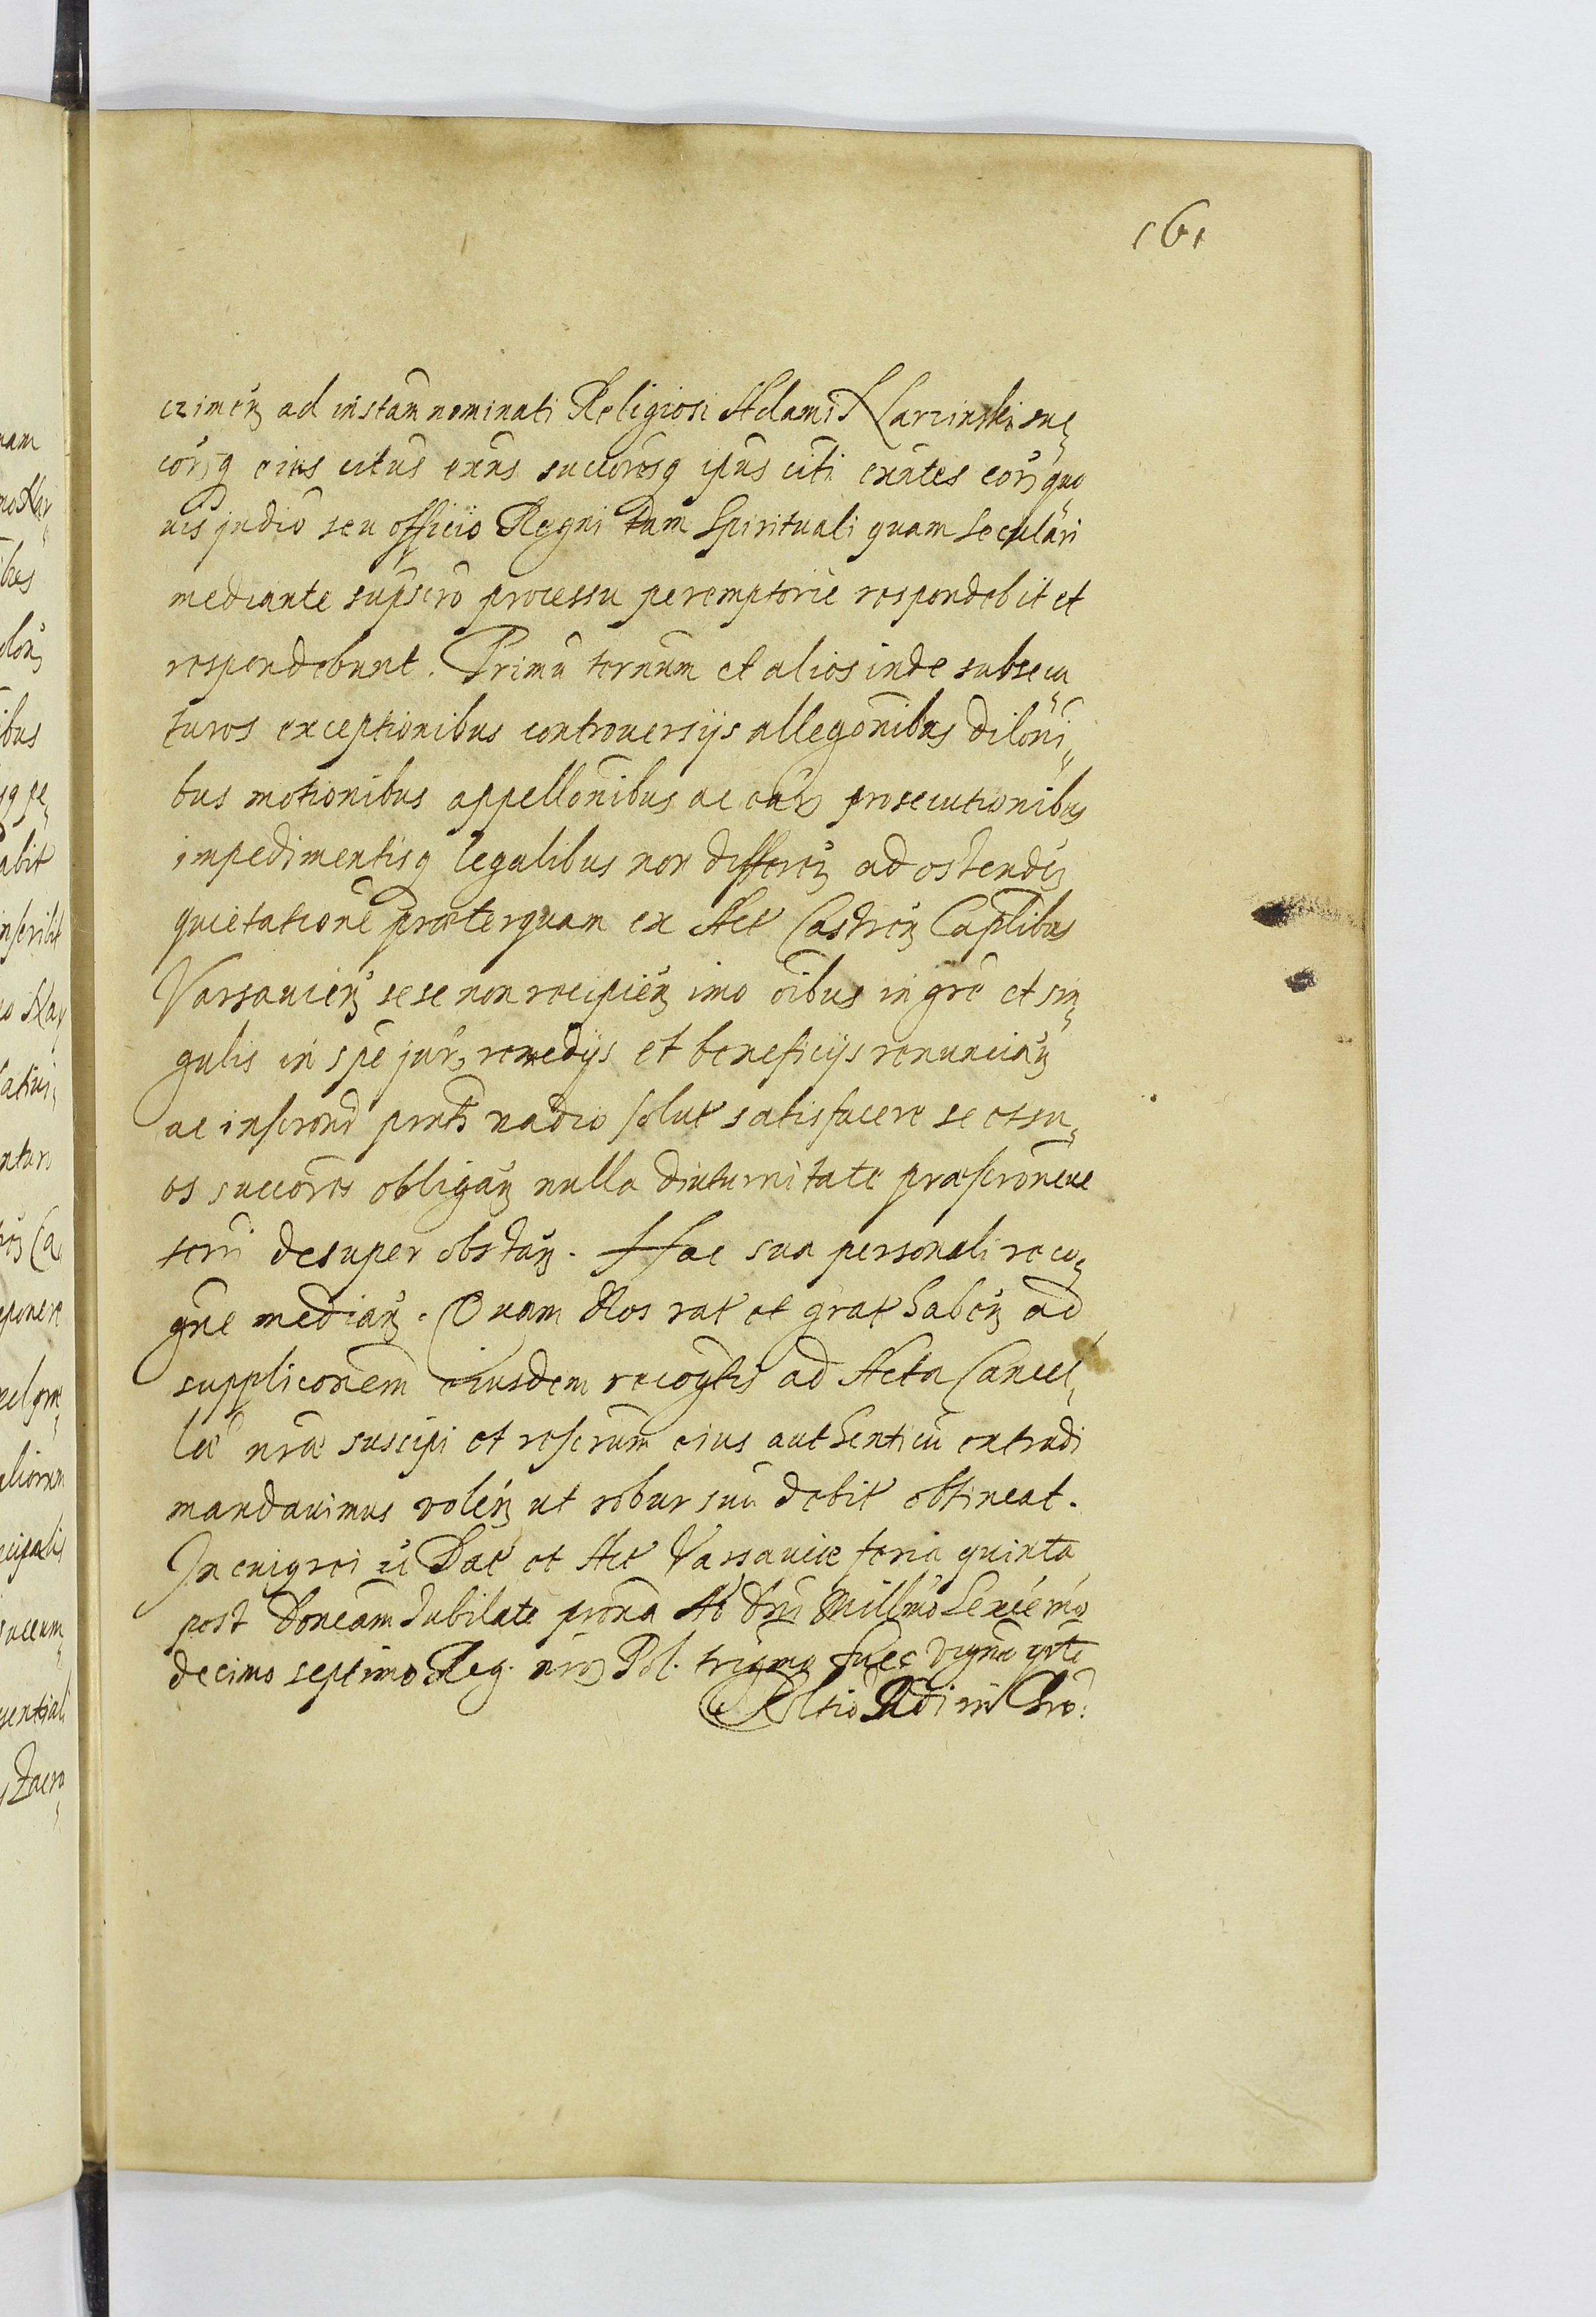 161
czimen ad instam nominati Religiosi Adami Karzinski suc
corq eius citus exns succoresq ipus citi exntes cor quo
uis judio seu officio Regni tam Spirituali quam Seculari
mediante supscro processu peremptorie respondebit et
respondebunt. Primu ternum et alios inde subsecu
turos exceptionibus controuersijs allegonibus diloni
bus motionibus appellonibus ac ear prosecutionibus
impedimentisq legalibus non differen ad ostenden
quietatione præterquam ex Act Castren Caplibus
Varsauien sese non recipien imo oibus in gre et sin
gulis in spe jur remedijs et beneficijs renuncian
ac inscrond pnti vadio solut satisfacere se et su
os succores obligan nulla diuturnitate præscroneue
terri desuper obstan. Hac sua personali reco
gne median. Quam Nos rat et grat haben ad
suppliconem eiusdem recogtis ad Acta Cancel
læ nræ suscipi et rescrum eius authenticu extradi
mandauimus volen ut robur suu debit obtineat.
In cuius rei Dat et Act Varsauiæ feria quinta
post Doncam Jubilate proxa Ao Dni Millmo Sexcemo
decimo septimo Reg. nror Pol. trigmo Suec vigmo qrto
Eltio Rndi in Chro:
uam
ibus
abit
inscribit
ibus
eponere